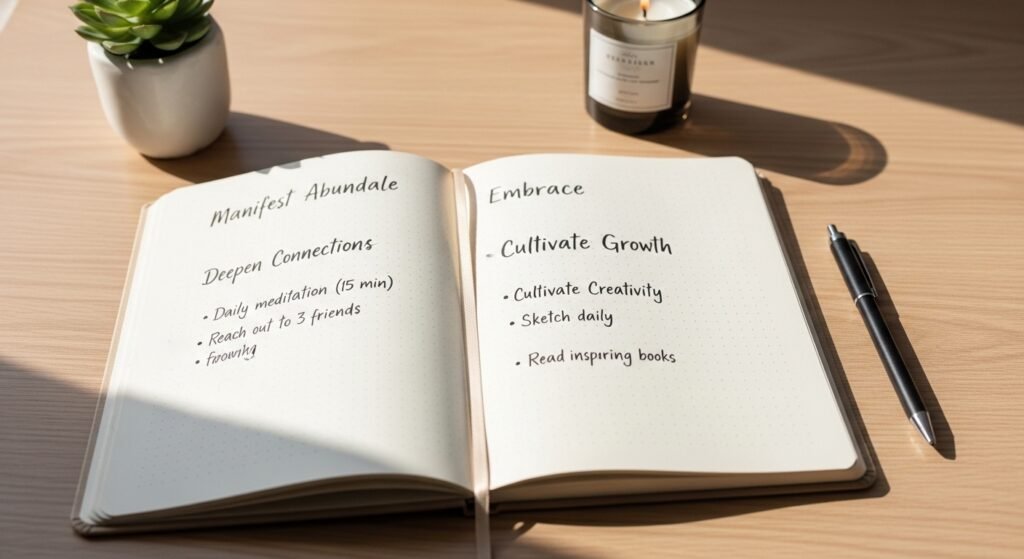 Manifest Abundale
Deepen Connections
• Daily meditation (15 min)
• Reach out to 3 friends
•
Embrace
Cultivate Growth
• Cultivate Creativity
• Sketch daily
• Read inspiring books